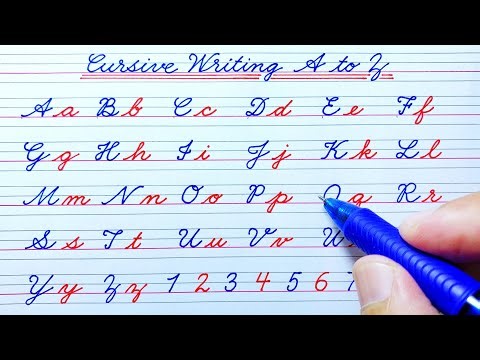 Cursive Writing A to Z
A a B b C c D d E e F f
G g H h I i J j K k L l
M m N n O o P p Q q R r
S s T t U u V v W
Y y Z z 1 2 3 4 5 6 7